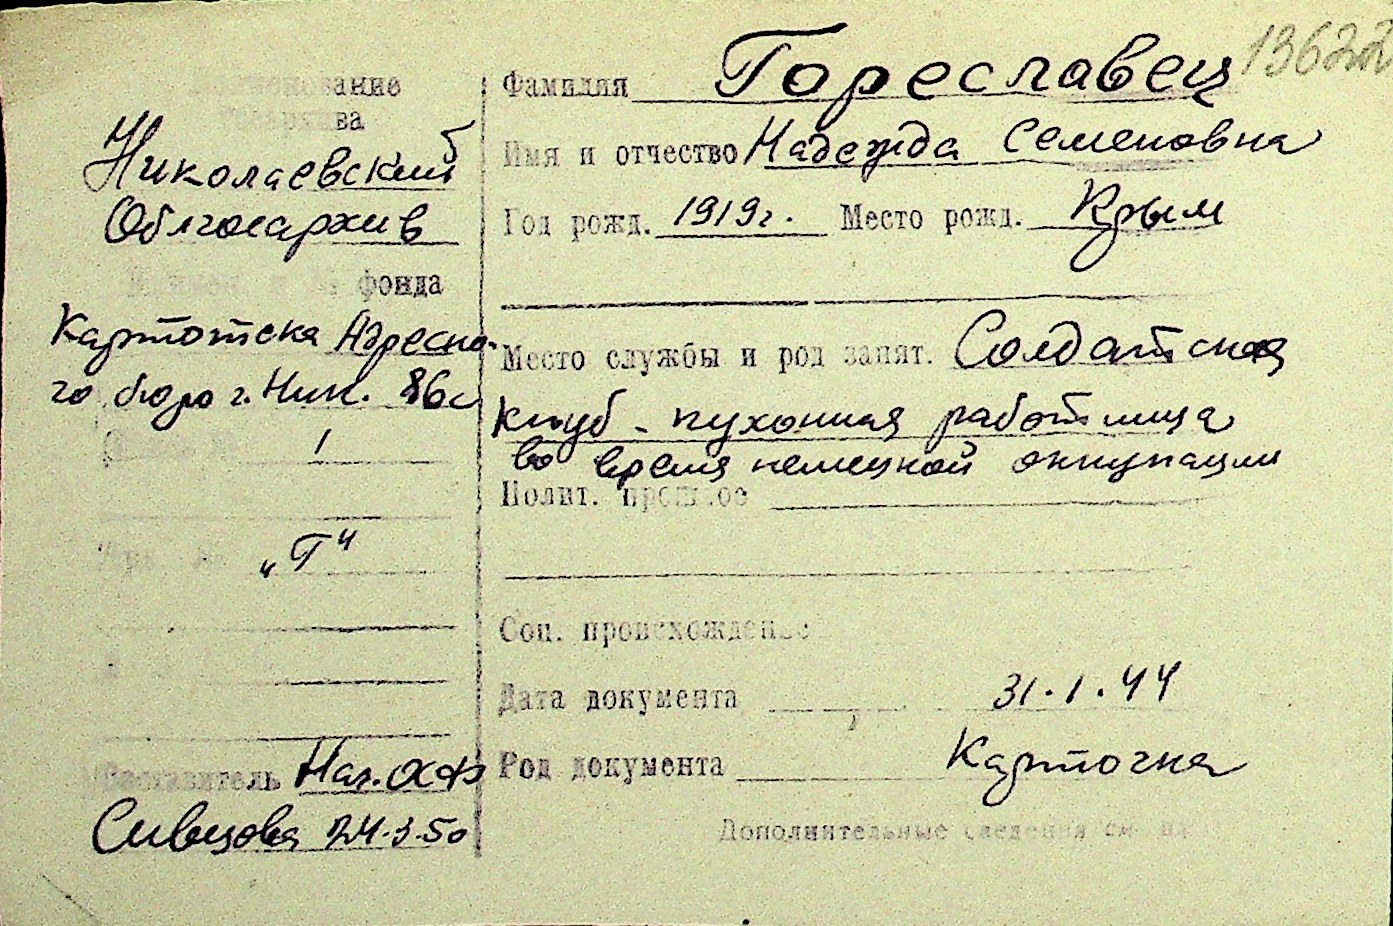 13622
Наименование
Госархива
Николаевский
Облгосархив
Наимен. и № фонда
Картотека Адресно-
го бюро г. Ник.
1
"Г"
Составитель Нач. ОХФ
24.3.50
Фамилия Гореславец
Имя и отчество Надежда Семеновна
Год рожд. 1919 г. Место рожд. Крым
Место службы и род занят. Солдатский
клуб - кухонная работница
во время немецкой оккупации
Полит. прошлое
Соц. происхождение
Дата документа 31.1.44
Род документа Карточка
Дополнительные сведения см. на